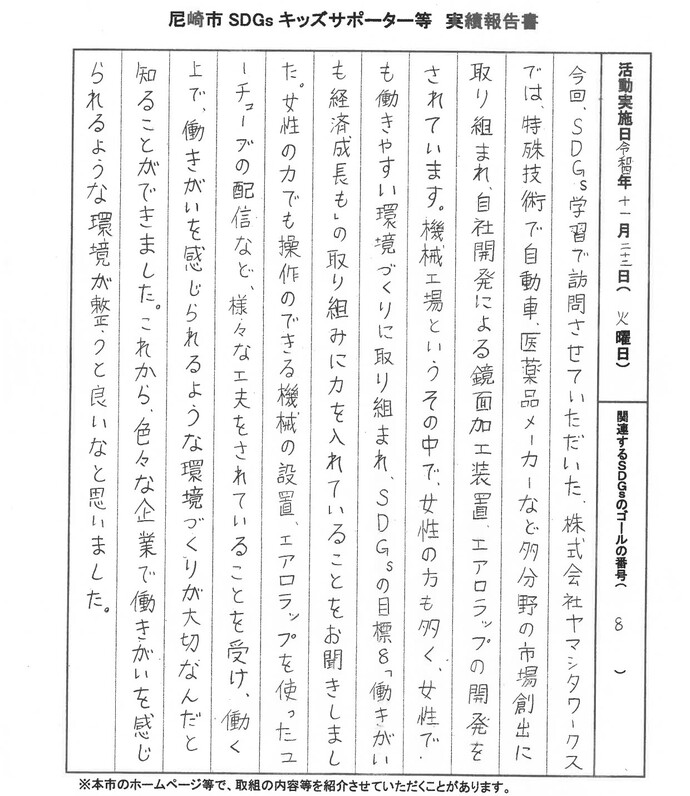 尼崎市 SDGs キッズサポーター等 実績報告書
活動実施日 令和四年 十一月 二十二日( 火 曜日)
関連するSDGsのゴールの番号( 8 )
今回、SDGs学習で訪問させていただいた、株式会社ヤマシタワークス
では、特殊技術で自動車、医薬品メーカーなど多分野の市場創出に
取り組まれ、自社開発による鏡面加工装置、エアロラップの開発を
されています。機械工場というその中で、女性の方も多く、女性で
も働きやすい環境づくりに取り組まれ、SDGsの目標8「働きがい
も経済成長も」の取り組みに力を入れていることをお聞きしまし
た。女性の力でも操作のできる機械の設置、エアロラップを使ったユ
ーチューブの配信など、様々な工夫をされていることを受け、働く
上で、働きがいを感じられるような環境づくりが大切なんだと
知ることができました。これから、色々な企業で働きがいを感じ
られるような環境が整うと良いなと思いました。
※本市のホームページ等で、取組の内容等を紹介させていただくことがあります。